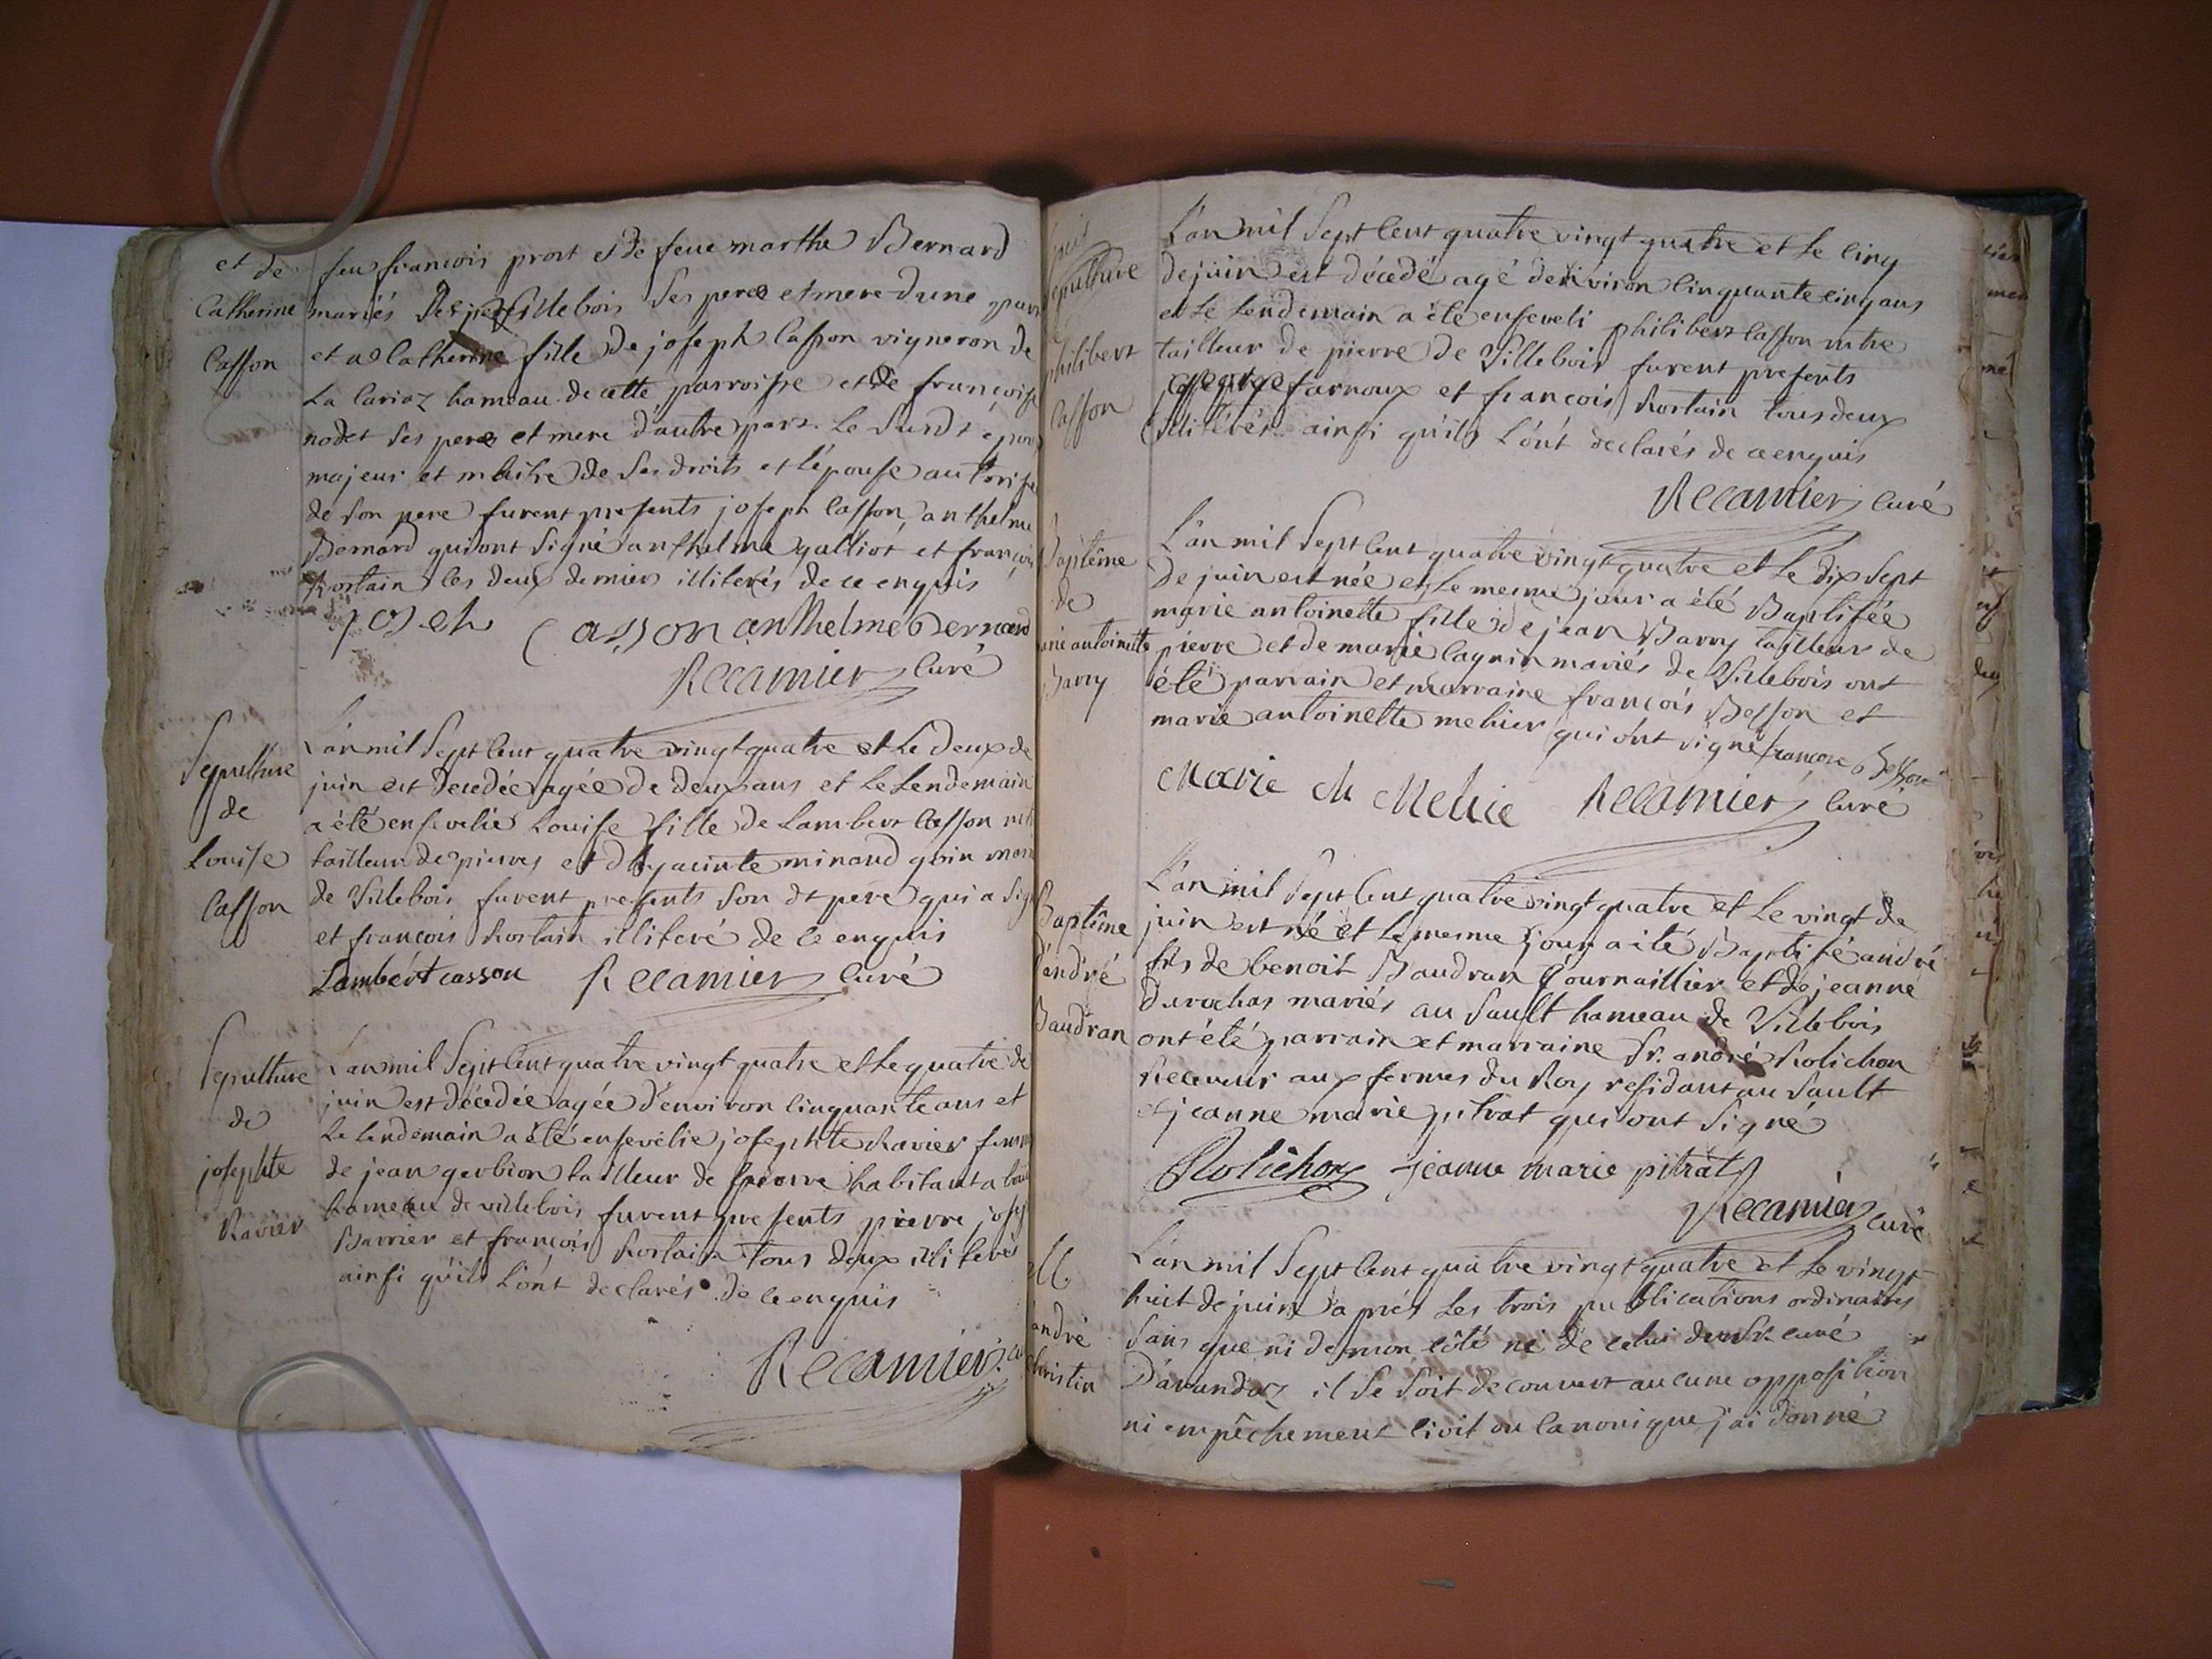 et de
Catherine
Casson
feu francois prost et de feue marthe Bernard
mariés villebois ses pere et mere d'une part
et a Catherine fille de joseph Casson vigneron de
La Carioz hameau de cette parroisse et de françoise
nodet ses pere et mere d'autre part. Le Susdt époux
majeur et maitre de ses droits et l'épouse autorisée
de son pere furent presents joseph Casson, anthelme
Bernard qui ont signé anthelme galliot et françois
Rostain les deux derniers illiterés de ce enquis
joseh Casson anthelme Bernard
Recamier Curé
Sepulture
de
Louise
Casson
L'an mil Sept Cent quatre vingt quatre et le deux de
juin est decedée agée de deux ans et le Lendemain
a été ensevelie Louise fille de Lambert Casson
tailleur de pierres et d'hyacinte minaud goin
de Villebois furent presents son dt pere qui a
et francois Rostain illiteré de ce enquis
Lambért casson Recamier Curé
Sepulture
de
josephte
Ravier
L'an mil Sept Cent quatre vingt quatre et le quatre de
juin est décedée agée d'environ Cinquante ans et
Le Lendemain a été ensevelie josephte Ravier
de jean gerbion tailleur de pierre habitant a
hameau de villebois furent presents pierre
Barrier et francois Rostain tous deux illiterés
ainsi qu'ils L'ont declarés de ce enquis
Recamier
Sepulture
philibert
Casson
L'an mil Sept Cent quatre vingt quatre et le Cinq
de juin est décedé agé d'environ Cinquante cinq ans
et Le Lendemain a été enseveli philibert Casson
tailleur de pierre de Villebois furent presents
farnoux et francois Rostain tous deux
illiterés ainsi qu'ils L'ont declarés de ce enquis
Recamier Curé
Baptême
de
marie antoinette
Barry
L'an mil Sept Cent quatre vingt quatre et Le dix Sept
de juin est née et Le mesme jour a été Baptisée
marie antoinette fille de jean Barry tailleur de
pierre et de marie Cagnin mariés de Villebois ont
été parrain et marraine francois Besson et
marie antoinette mehier qui ont signé francois Besson
Marie M Mehie Recamier Curé
Baptême
d'andré
Baudran
L'an mil Sept Cent quatre vingt quatre et Le vingt de
juin est né et Le mesme jour a été Baptisé andré
fils de benoit Baudran fournaillier et de jeanne
durochas mariés au Sault hameau de Villebois
ont été parrain et marraine Sr. andré Rolichon
Receveur aux fermes du Roy residant au Sault
et jeanne marie pitrat qui ont signé
Rolichon jeanne marie pitrat
Recamier Curé
M.
andré
christin
L'an mil Sept Cent quatre vingt quatre et Le vingt
huit de juin après Les trois publications ordinaires
sans que ni de mon côté ni de celui de Sr. curé
D'arandaz il se soit decouvert aucune opposition
ni empêchement civil ou Canonique j'ai donné